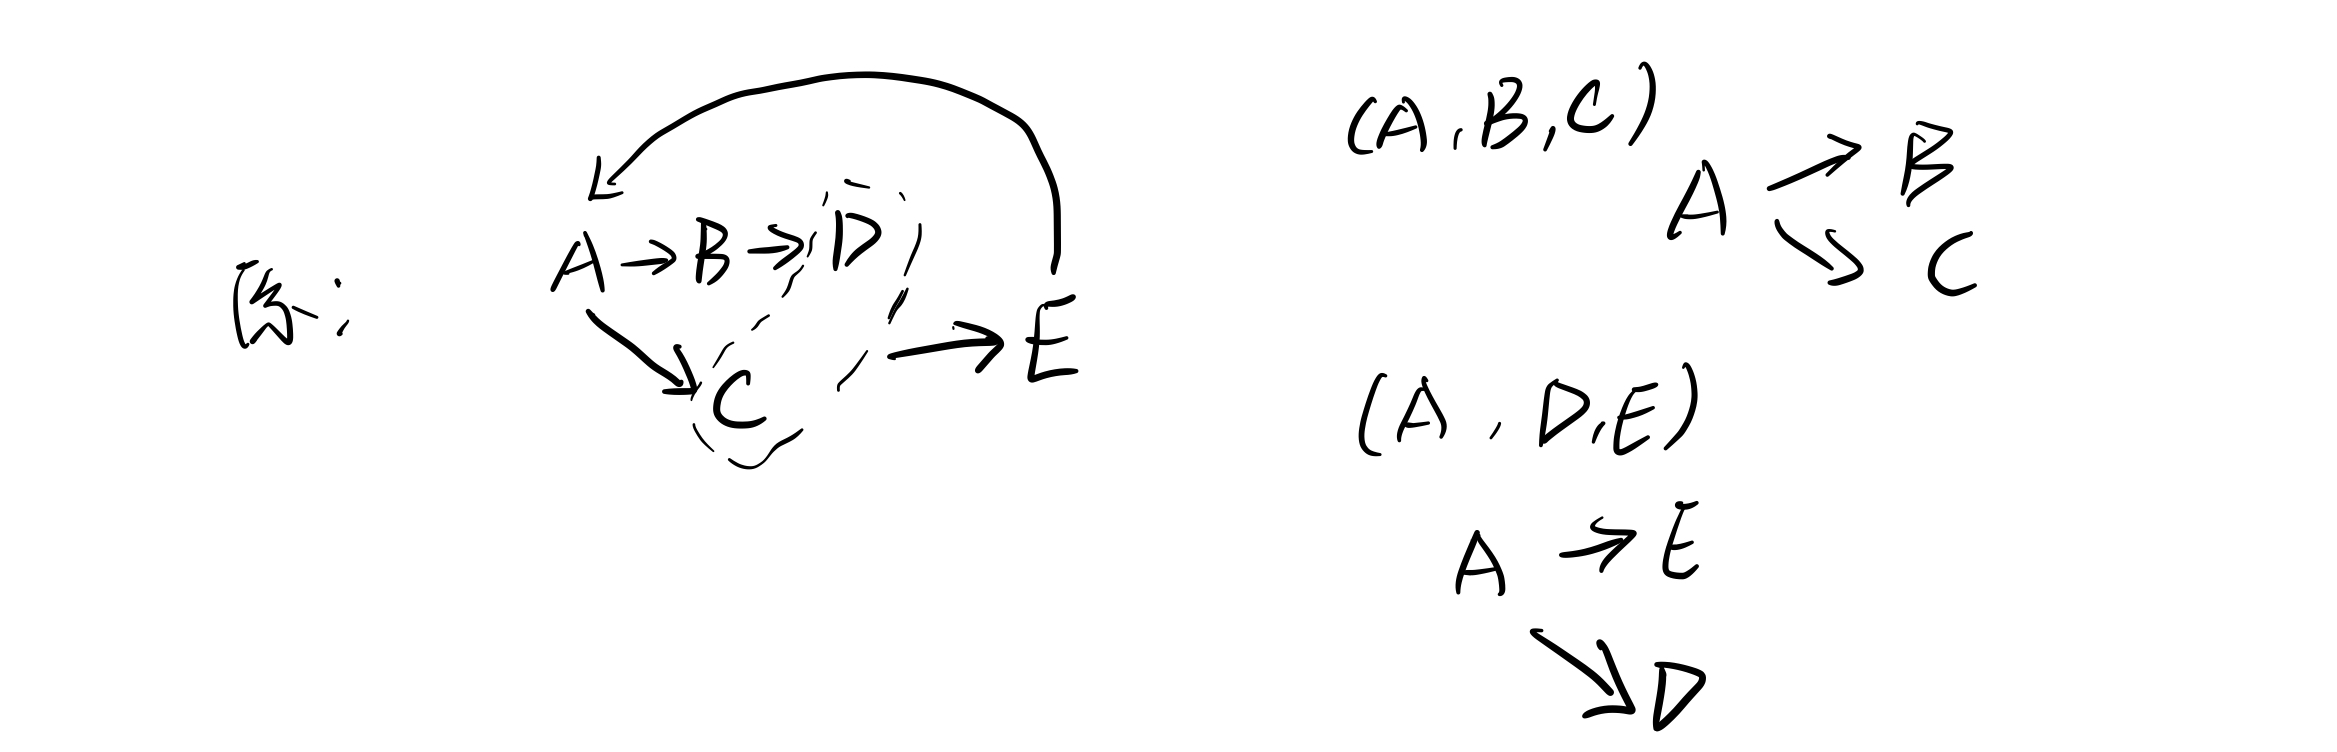 A → B → D
C
→ E
(A, B, C)
A → B
→ C
(A, D, E)
A → E
→ D